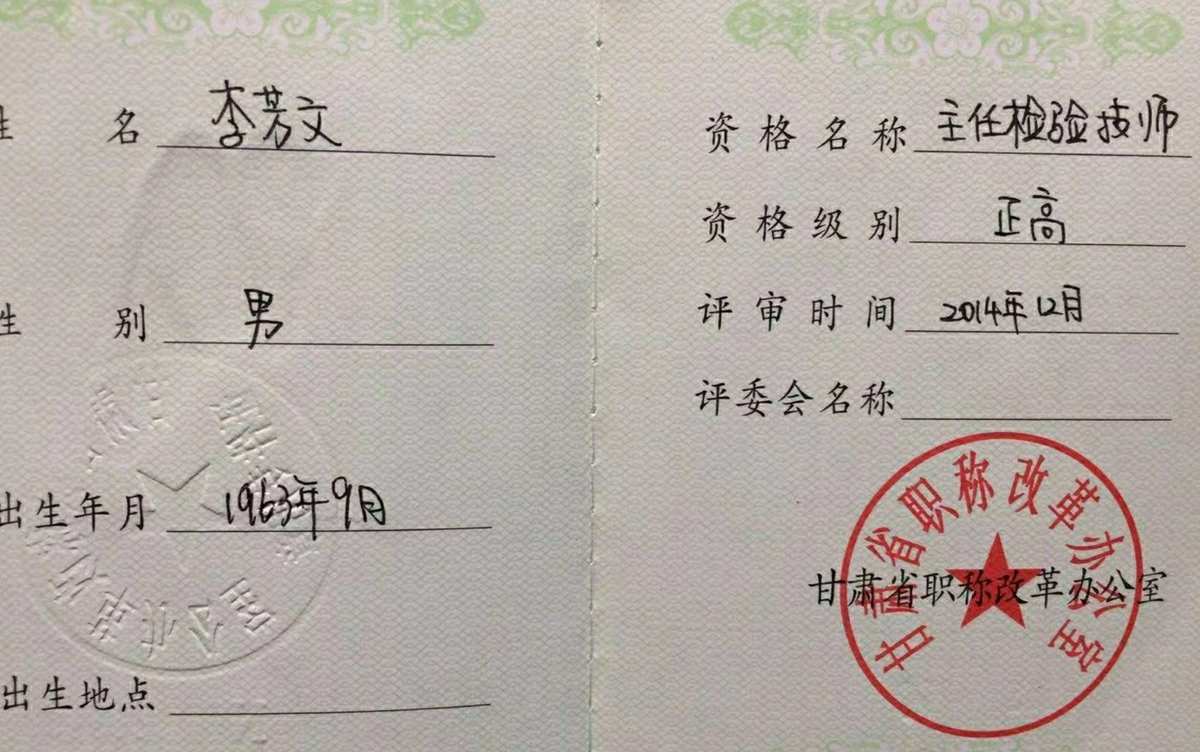 姓名 李芳文
性别 男
出生年月 1963年9月
出生地点
资格名称 主任检验技师
资格级别 正高
评审时间 2014年12月
评委会名称
甘肃省职称改革办公室
甘肃省职称改革办公室